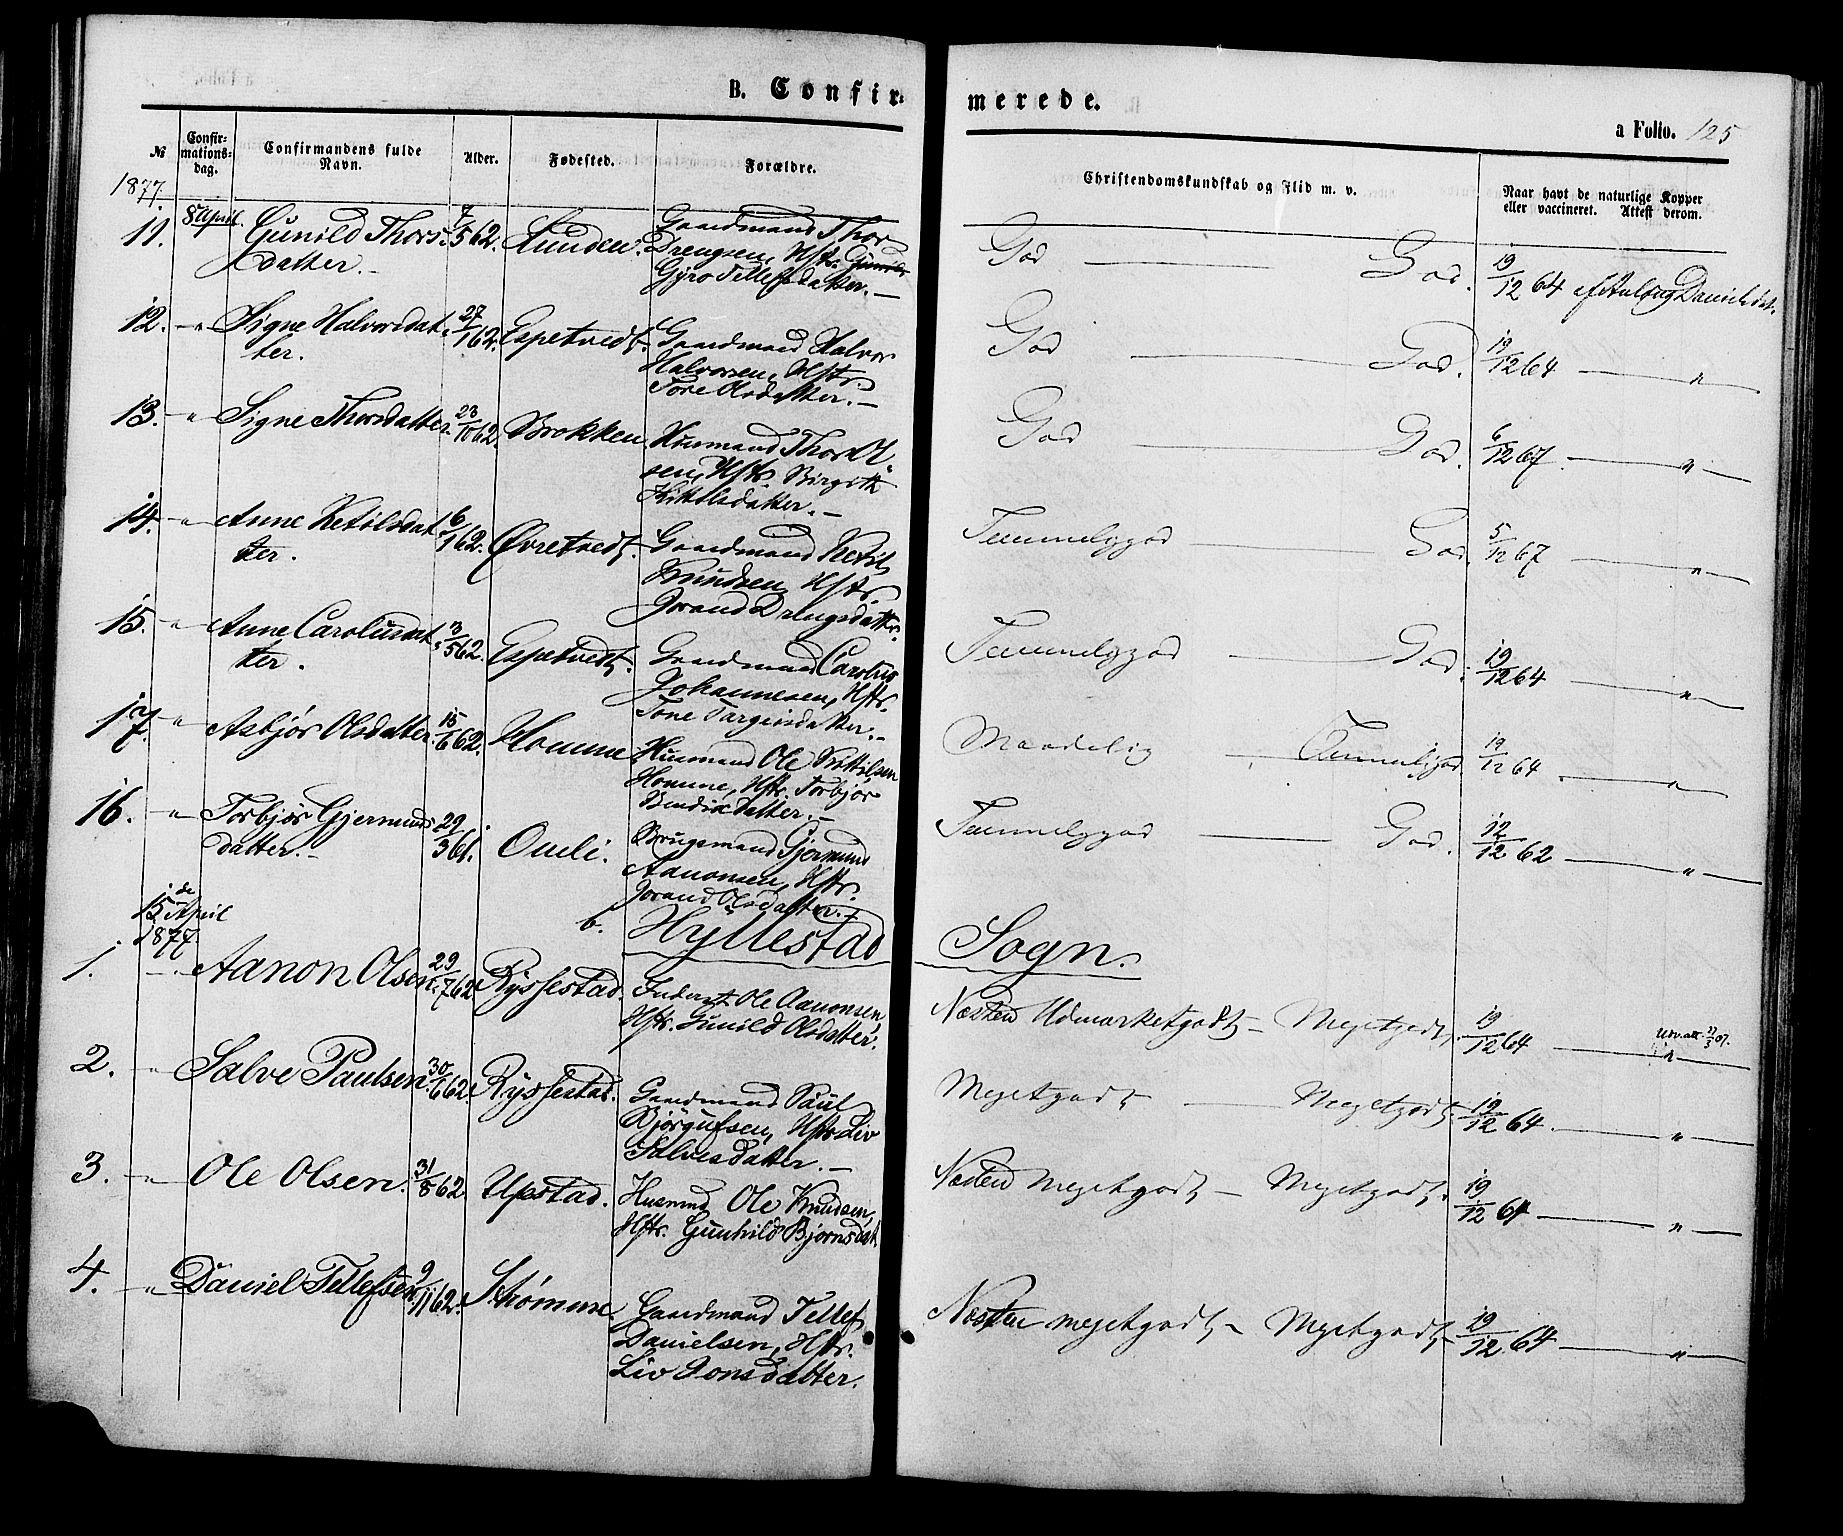 B. Confir-
merede.
a Folio. 125
№
Confir-
mations-
dag.
Confirmandens fulde
Navn.
Alder.
Fødested.
Forældre.
Christendomskundskab og Flid m. v.
Naar havt de naturlige Kopper
eller vaccineret. Attest derom.
1877.
11. 8de April. Gunild Thors- 7/5 62. Lunden. Gaardmand Thor
datter. Drengsen, Hstr. Gunild
Gyro Tellefsdatter.
God — God. 19/12 64 af Aslaug Danielsdat.
12. " Signe Halvorsdat- 27/1 62. Espetvedt. Gaardmand Halvor
ter. Halvorsen, Hstr.
Tore Olsdatter.
God — God. 19/12 64 — "
13. " Signe Thorsdatter. 23/10 62. Brokken Huusmand Thor Ol-
sen, Hstr. Birgith
Kittilsdatter.
God — God. 6/12 67. — "
14. " Anne Ketilsdat- 6/1 62. Øvretvedt. Gaardmand Ketil
ter. Knudsen, Hstr.
Jorand Drengsdatter.
Temmeliggod — God. 5/12 67 — "
15. " Anne Carolusdat- 3/5 62. Espetvedt. Gaardmand Carolus
ter. Johannesen, Hstr.
Tone Targeirsdatter.
Temmeliggod — God. 19/12 64 — "
17. " Asbjør Olsdatter. 15/6 62. Homme Huusmand Ole Kittilsen
Homme, Hstr. Torbjør
Bendixdatter.
Maadelig — Temmeliggod. 19/12 64. — "
16. " Torbjør Gjermunds- 29/3 61. Omli. Brugsmand Gjermund
datter. Aanonsen, Hstr.
Jorand Olsdatter.
Temmeliggod — God. 12/12 62 — "
15de April
1877.
b. Hyllestad Sogn.
1. " Aanon Olsen 29/7 62 Ryssestad. Inderst Ole Aanonsen
Hstr. Gunild Olsdatter.
Næsten Udmærketgodt — Megetgodt. 19/12 64 — "
Udv. att. 22/3 07.
2. " Salve Paulsen. 30/6 62. Ryssestad. Gaardmand Paul
Bjørgufsen, Hstr. Liv
Salvesdatter.
Megetgodt — Megetgodt. 19/12 64. — "
3. " Ole Olsen. 31/8 62 Upstad. Husmnd Ole Knudsen,
Hstr. Gunhild Bjørnsdat.
Næsten megetgodt — Megetgodt. 19/12 64 — "
4. " Daniel Tellefsen 9/11 62. Strømme. Gaardmand Tellef
Danielsen, Hstr.
Liv Jonsdatter.
Næsten megetgodt — Megetgodt 19/12 64 — "